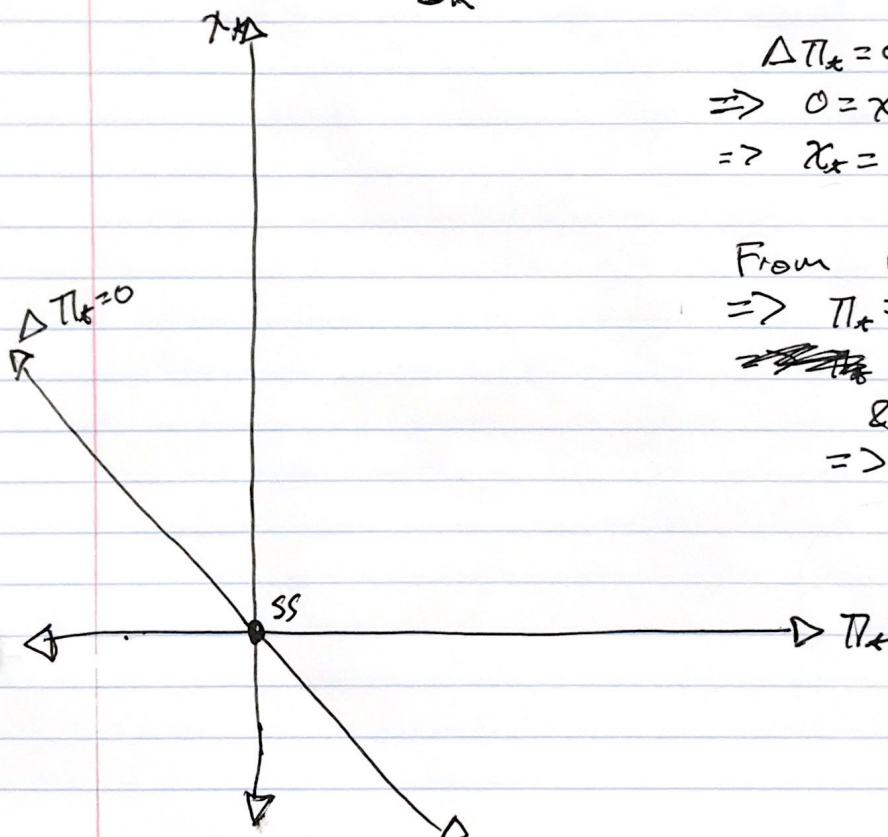 x_t
Δπ_t = 0
=> 0 = x
=> x_t =
From
=> π_t =
&
=>
Δπ_t=0
SS
π_t